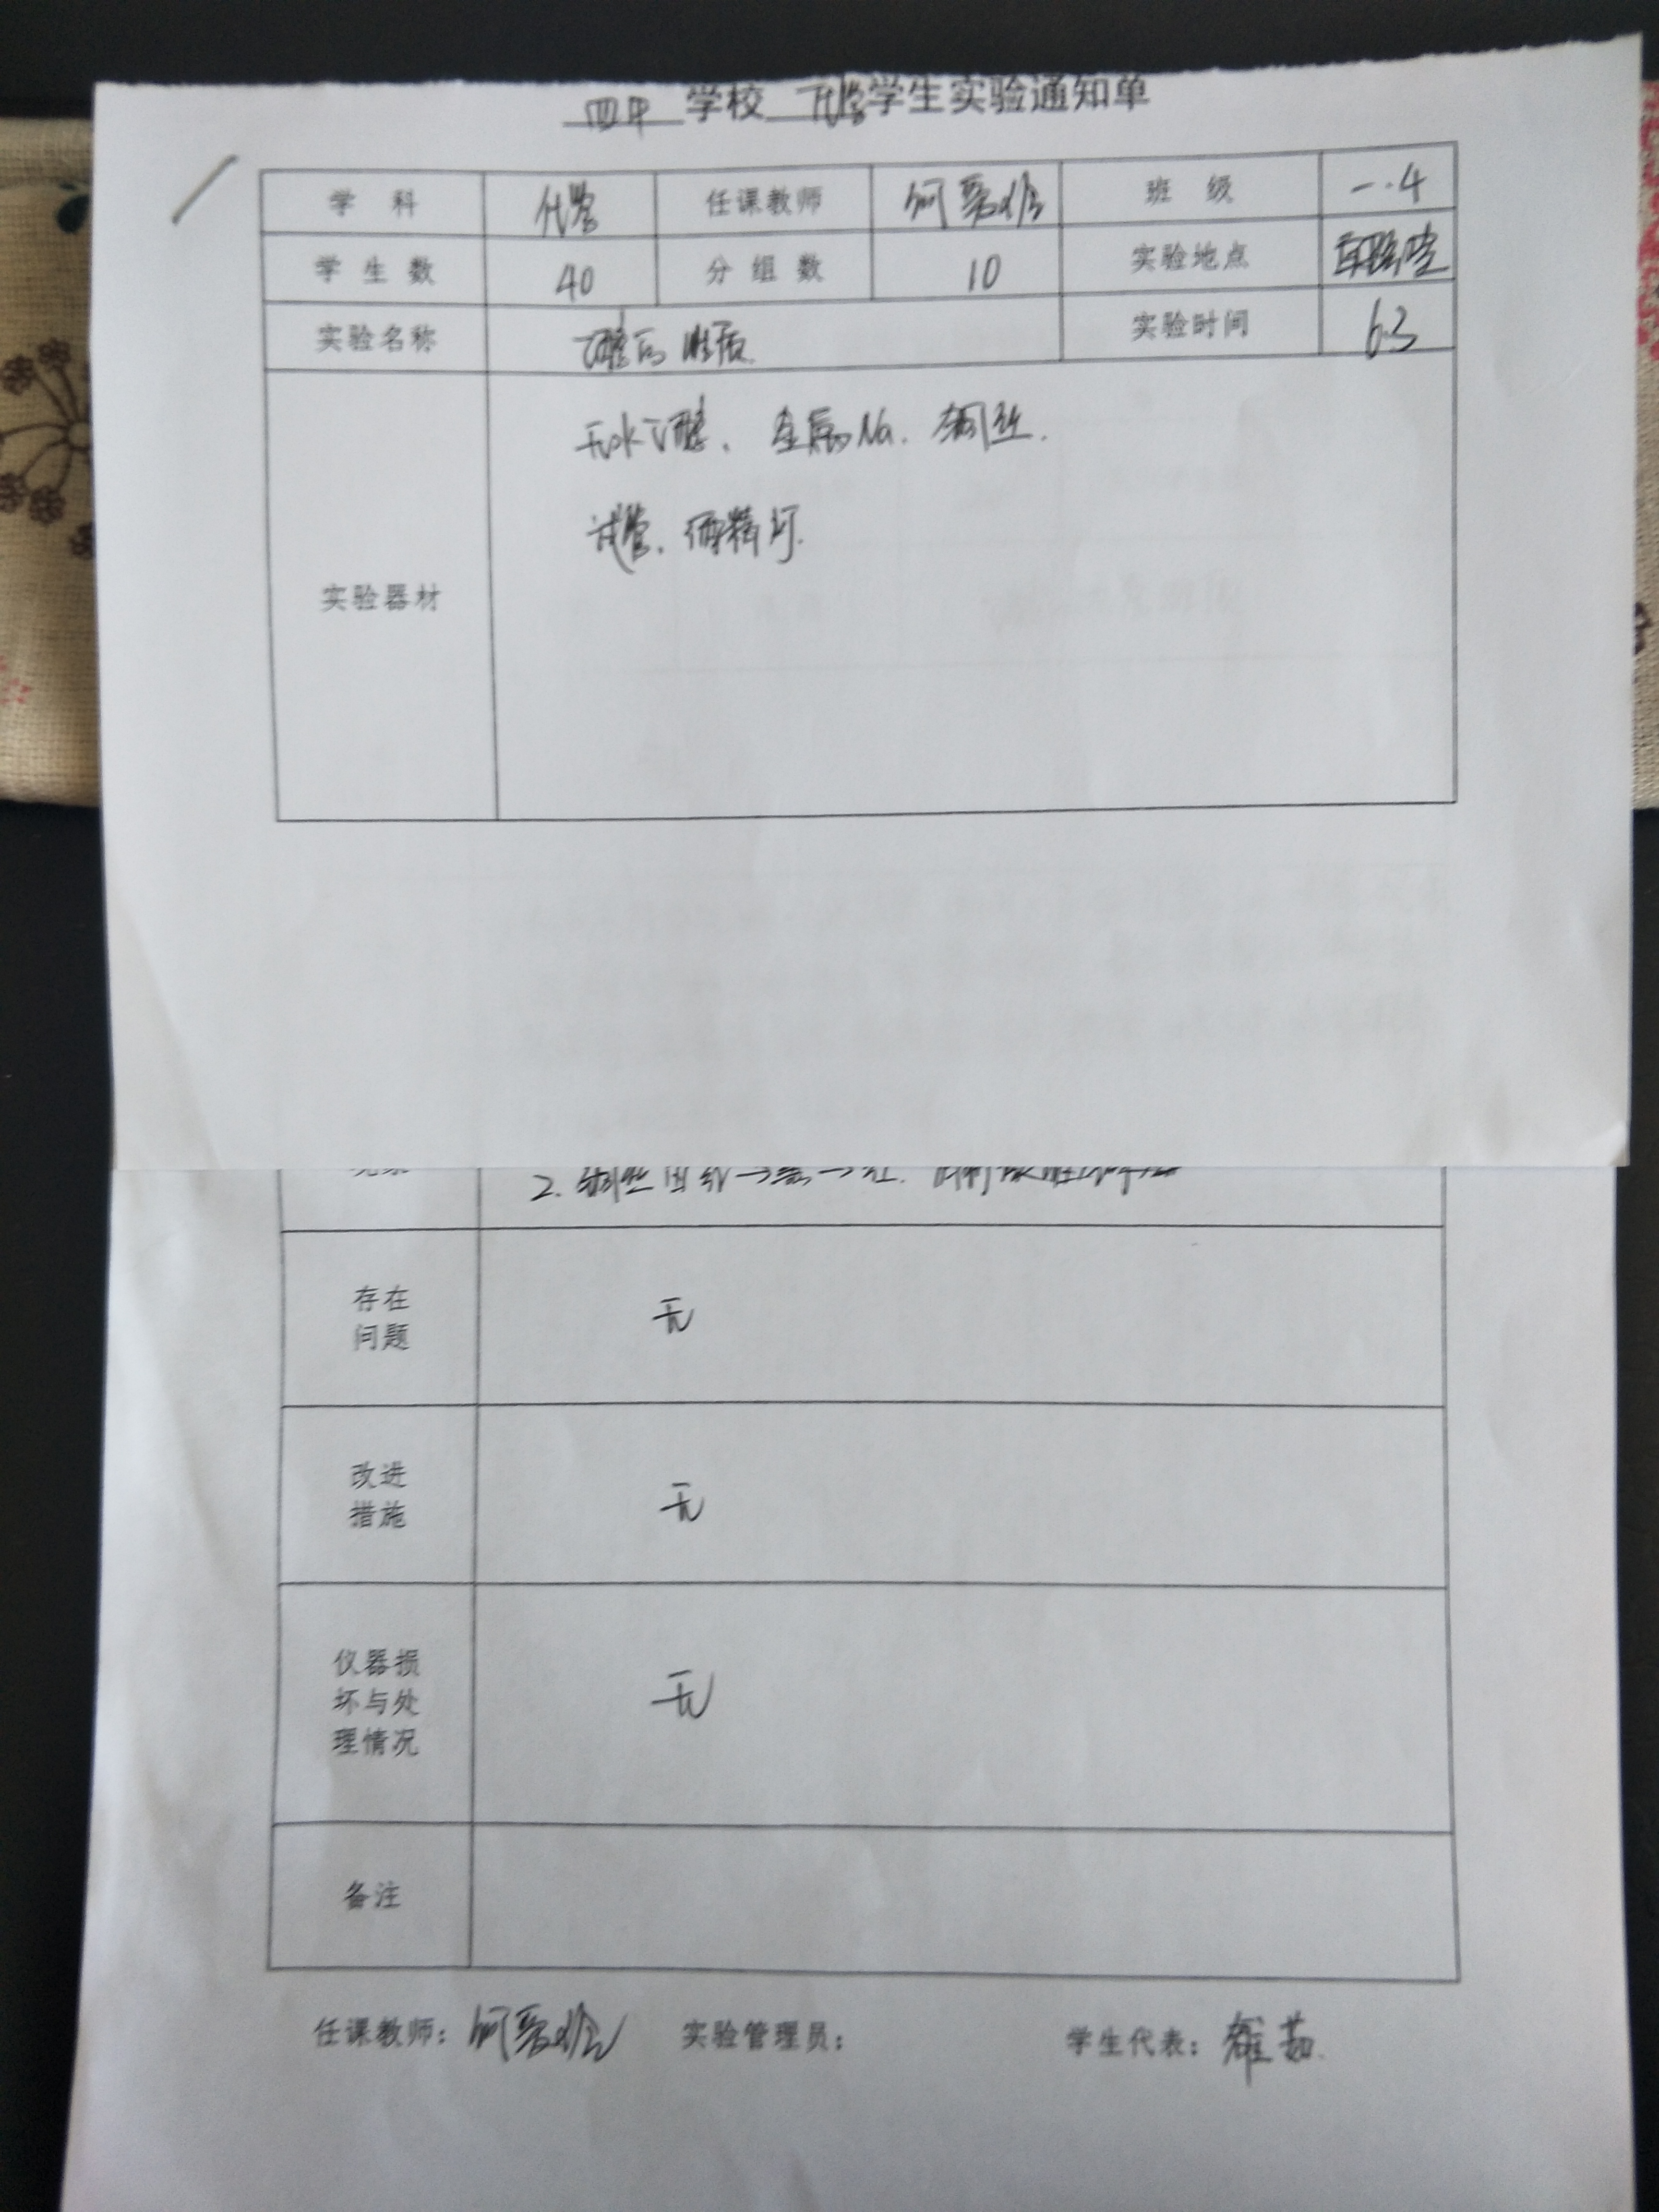 四中 学校 化学 学生实验通知单
学 科 化学 任课教师 班 级 一.4
学 生 数 40 分 组 数 10 实验地点 实验室
实验名称 乙醇的性质 实验时间 6.3
实验器材
无水乙醇、金属Na、铜丝.
试管、酒精灯.
2. 铜丝由红→黑→红.
存在
问题
无
改进
措施
无
仪器损
坏与处
理情况
无
备注
任课教师: 实验管理员: 学生代表: